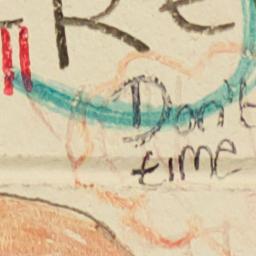 RE
Don't
time